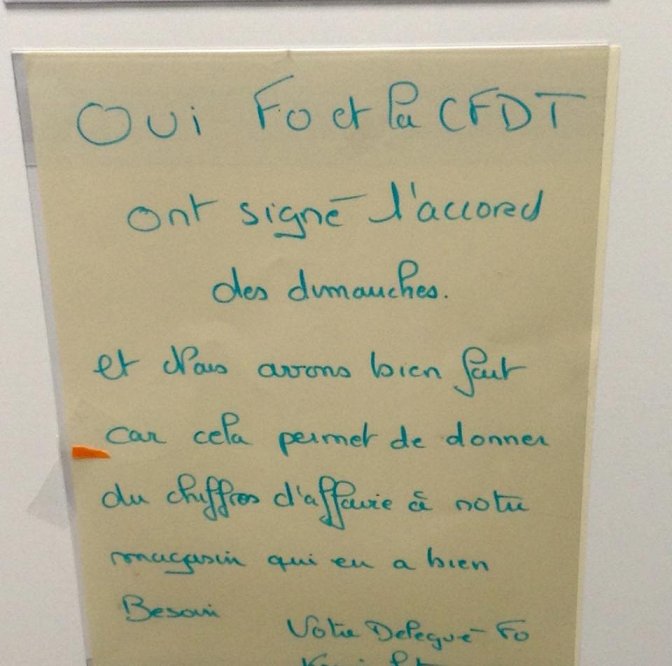 Oui Fo et la CFDT
ont signé l'accord
des dimanches.
et Nous avons bien fait
car cela permet de donner
du chiffres d'affaire à notre
magasin qui en a bien
Besoin
Votre Delegué Fo